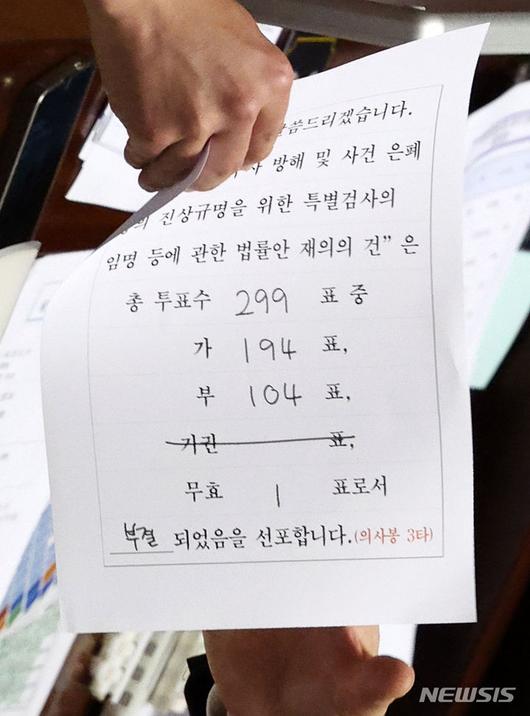 씀드리겠습니다.
방해 및 사건 은폐
진상규명을 위한 특별검사의
임명 등에 관한 법률안 재의의 건” 은
총 투표수 299 표 중
가 194 표,
부 104 표,
기권 표,
무효 1 표로서
부결 되었음을 선포합니다.(의사봉 3타)
NEWSIS